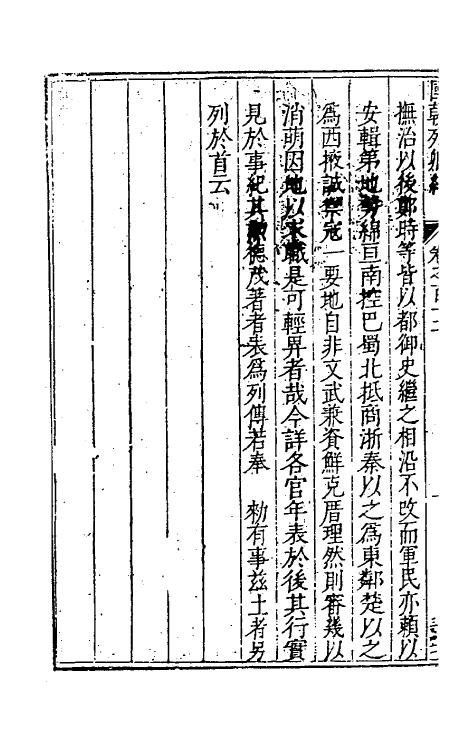 國朝列卿紀 卷之百十二
撫治以後鄭時等皆以都御史繼之相沿不改而軍民亦賴以
安輯第地勢綿亘南控巴蜀北抵商浙秦以之為東鄰楚以之
為西掖誠禁冦一要地自非文武兼資鮮克厝理然則審幾以
消萌因地以求職是可輕畀者哉今詳各官年表於後其行實
見於事紀其勳德茂著者表為列傳若奉 勑有事兹土者另
列於首云